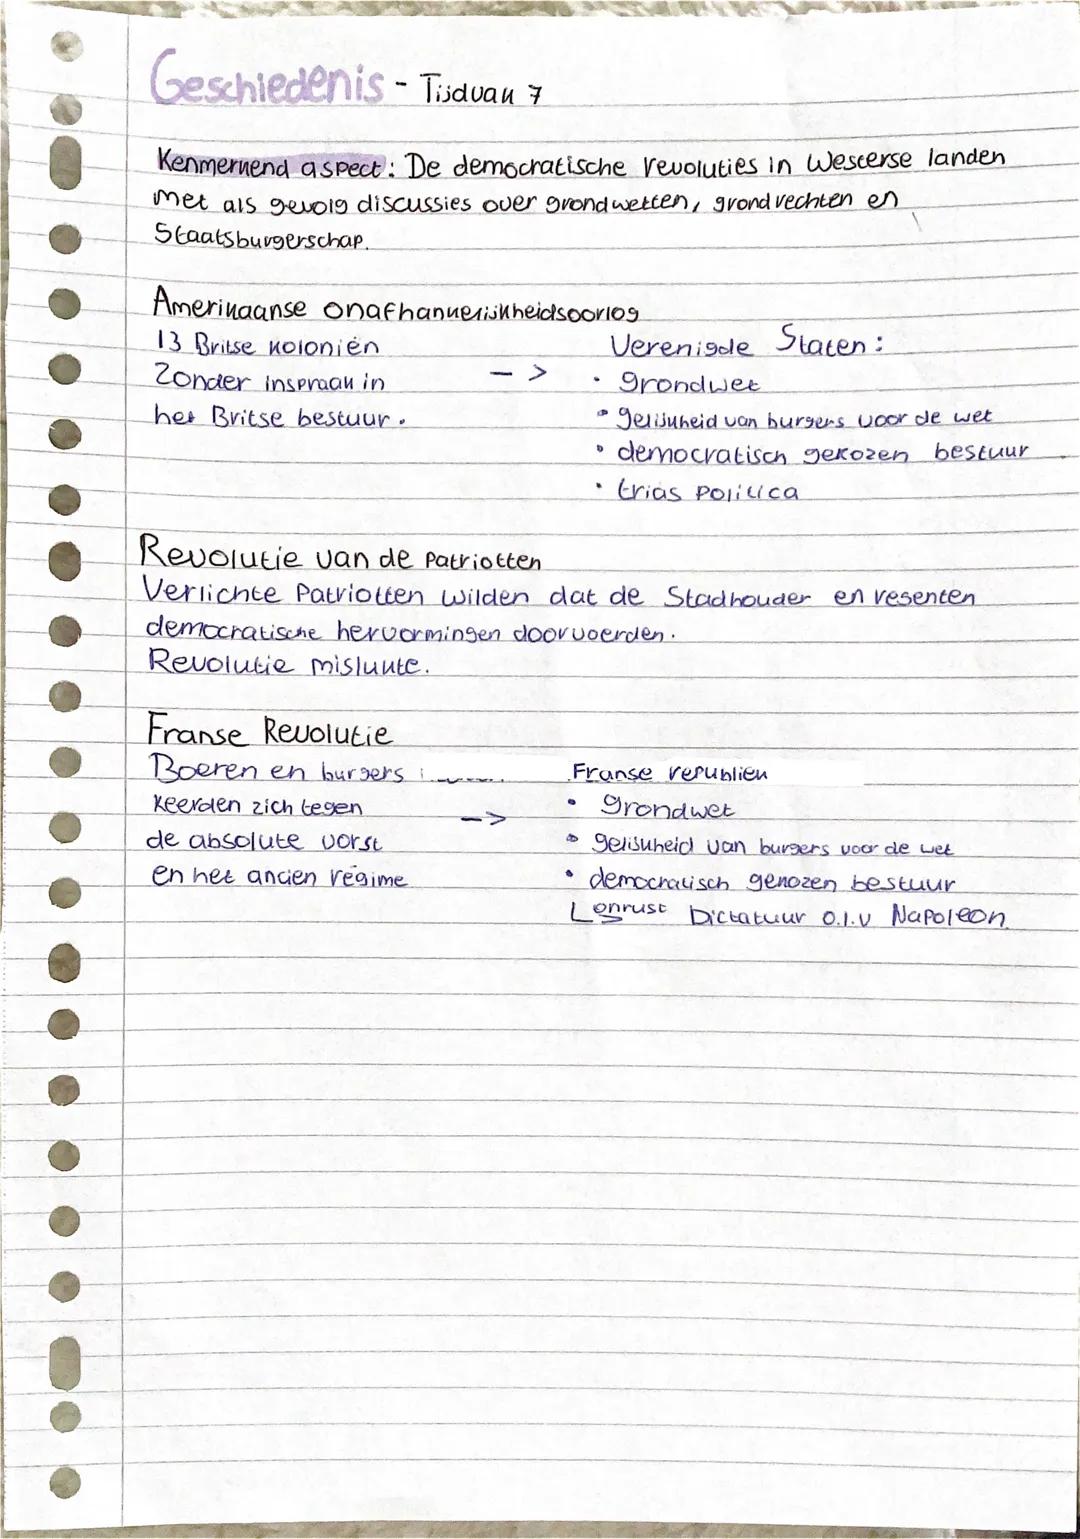 Geschiedenis - Tijdvak 7
Kenmerkend aspect: De democratische revoluties in Westerse landen
met als gevolg discussies over grondwetten, grondrechten en
Staatsburgerschap.
Amerikaanse onafhankelijkheidsoorlog
13 Britse koloniën
Zonder inspraak in
het Britse bestuur.
->
Verenigde Staten:
• grondwet
• gelijkheid van burgers voor de wet
• democratisch gekozen bestuur
• trias politica
Revolutie van de Patriotten
Verlichte Patriotten wilden dat de Stadhouder en regenten
democratische hervormingen doorvoerden.
Revolutie mislukte.
Franse Revolutie
Boeren en burgers
keerden zich tegen
de absolute vorst
en het ancien régime
->
Franse republiek
• grondwet
• gelijkheid van burgers voor de wet
• democratisch gekozen bestuur
L onrust Dictatuur o.l.v Napoleon.